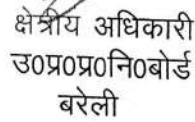 क्षेत्रीय अधिकारी
उ0प्र0प्र0नि0बोर्ड
बरेली